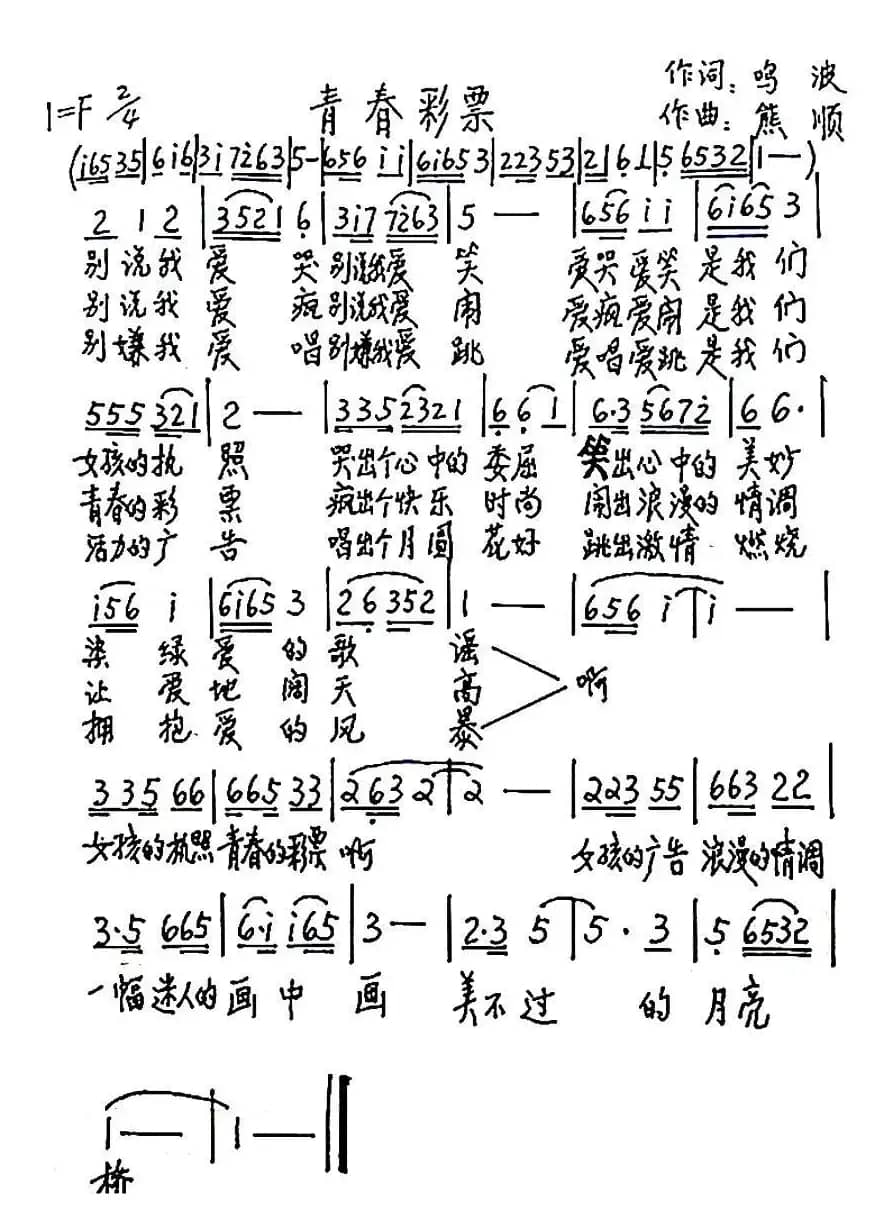 1=F 2/4 青春彩票 作词：鸣波
作曲：熊顺
(i65 35|6i6|3i 7i63|5—|656 ii|6i65 3|223 53|21 61|5 6532|1—)
2 1 2|3521 6|3i7 7i63|5—|656 ii|6i65 3|
别说我爱哭别说我爱笑 爱哭爱笑是我们
别说我爱疯别说我爱闹 爱疯爱闹是我们
别嫌我爱唱别嫌我爱跳 爱唱爱跳是我们
555 321|2—|335 2321|6 6 1|6·3 567i|6 6·|
女孩的执照 哭出个心中的委屈 笑出心中的美妙
青春的彩票 疯出个快乐时尚 闹出浪漫的情调
活力的广告 唱出个月圆花好 跳出激情燃烧
i56 i|6i65 3|26 352|1—|656 i|i—|
染绿爱的歌谣
让爱地阔天高 啊
拥抱爱的风暴
335 66|665 33|263 2|2—|223 55|663 22|
女孩的执照青春的彩票啊 女孩的广告浪漫的情调
3·5 665|6·i i65|3—|2·3 5|5· 3|5 6532|
一幅迷人的画中画 美不过的月亮
1—|1—‖
桥